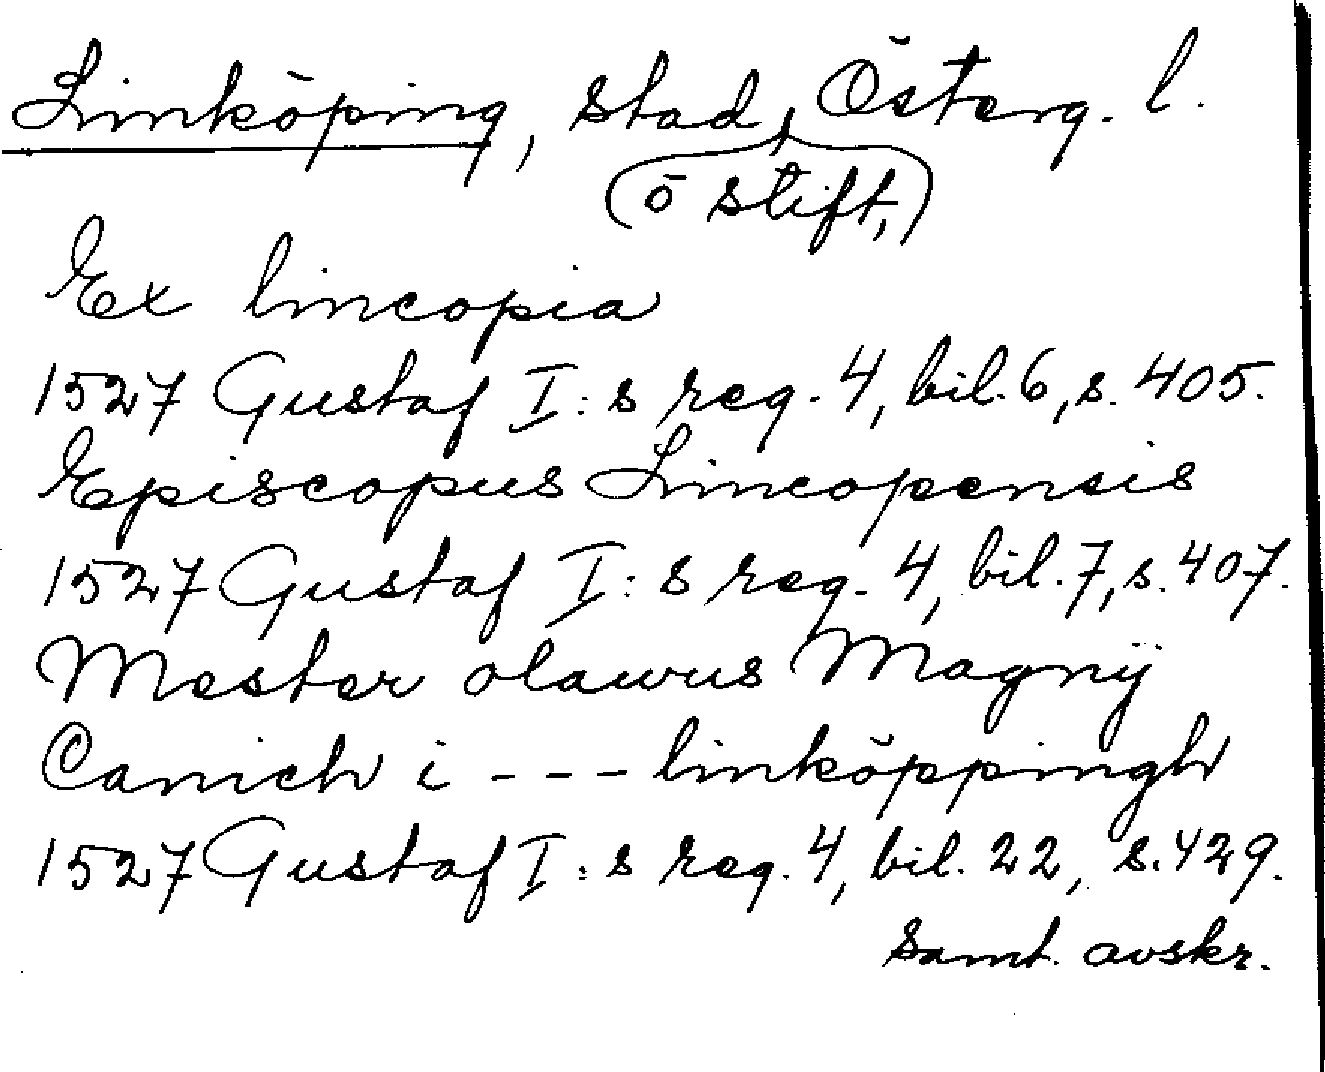 Linköping, stad, Österg. l.
(o stift,)
Ex lincopia
1527 Gustaf I:s reg. 4, bil. 6, s. 405.
Episcopus Lincopensis
1527 Gustaf I:s reg. 4, bil. 7, s. 407.
Mester olawus Magnÿ
Canich i --- linköppingh
1527 Gustaf I:s reg. 4, bil. 22, s. 429.
Samt. avskr.